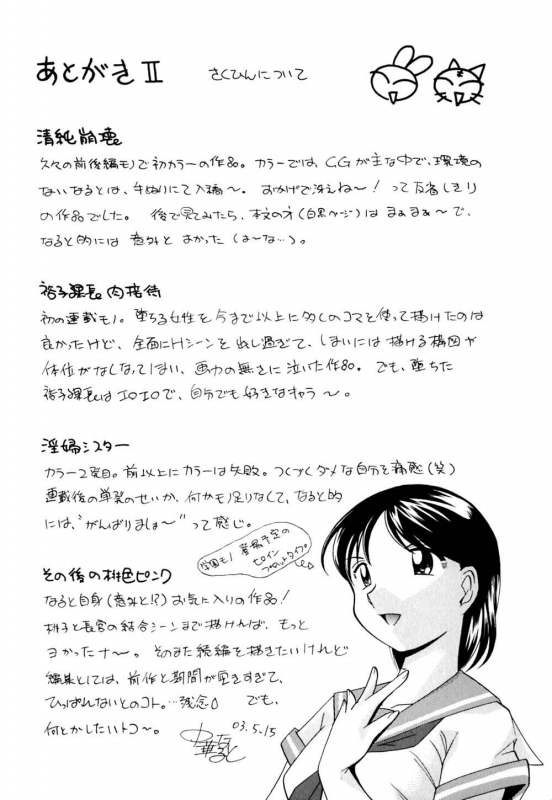 あとがきⅡ さくひんについて
清純崩壊
久々の前後編モノで初カラーの作品。カラーでは、CGが主な中で、環境の
ないなるとは、手ぬりにて入稿〜。おかげで冴えね〜！って反省しきり
の作品でした。後で見てみたら、本文の方（白黒ページ）はまぁまぁ〜で、
なると的には意外とよかった（ま〜な…）。
裕子課長 肉接待
初の連載モノ。堕ちる女性を今まで以上に多しのコマを使って描けたのは
良かったけど、全面にHシーンを出し過ぎて、しまいには描ける構図が
体位がなしなってしまい、画力の無さに泣いた作品。でも、堕ちた
裕子課長はエロエロで、自分でも好きなキャラ〜。
淫婦シスター
カラー2度目。前以上にカラーは失敗。つくづくダメな自分を痛感（笑）
連載後の単発のせいか、何かモノ足りなしして、なると的
には、"がんばりましょ〜"って感じ。
学園モノ登場予定の
ヒロイン
プロットタイプ
その後の桃色ピンク
なると自身（意外と!?）お気に入りの作品！
桃子と長官の結合シーンまで描ければ、もっと
ヨかったナ〜。そのまた続編を描きたいけれど
編集としては、前作と期間が空きすぎて、
ひっぱんないとのコト。…残念 でも、
何とかしたいトコ〜。
03.5.15
中華なると